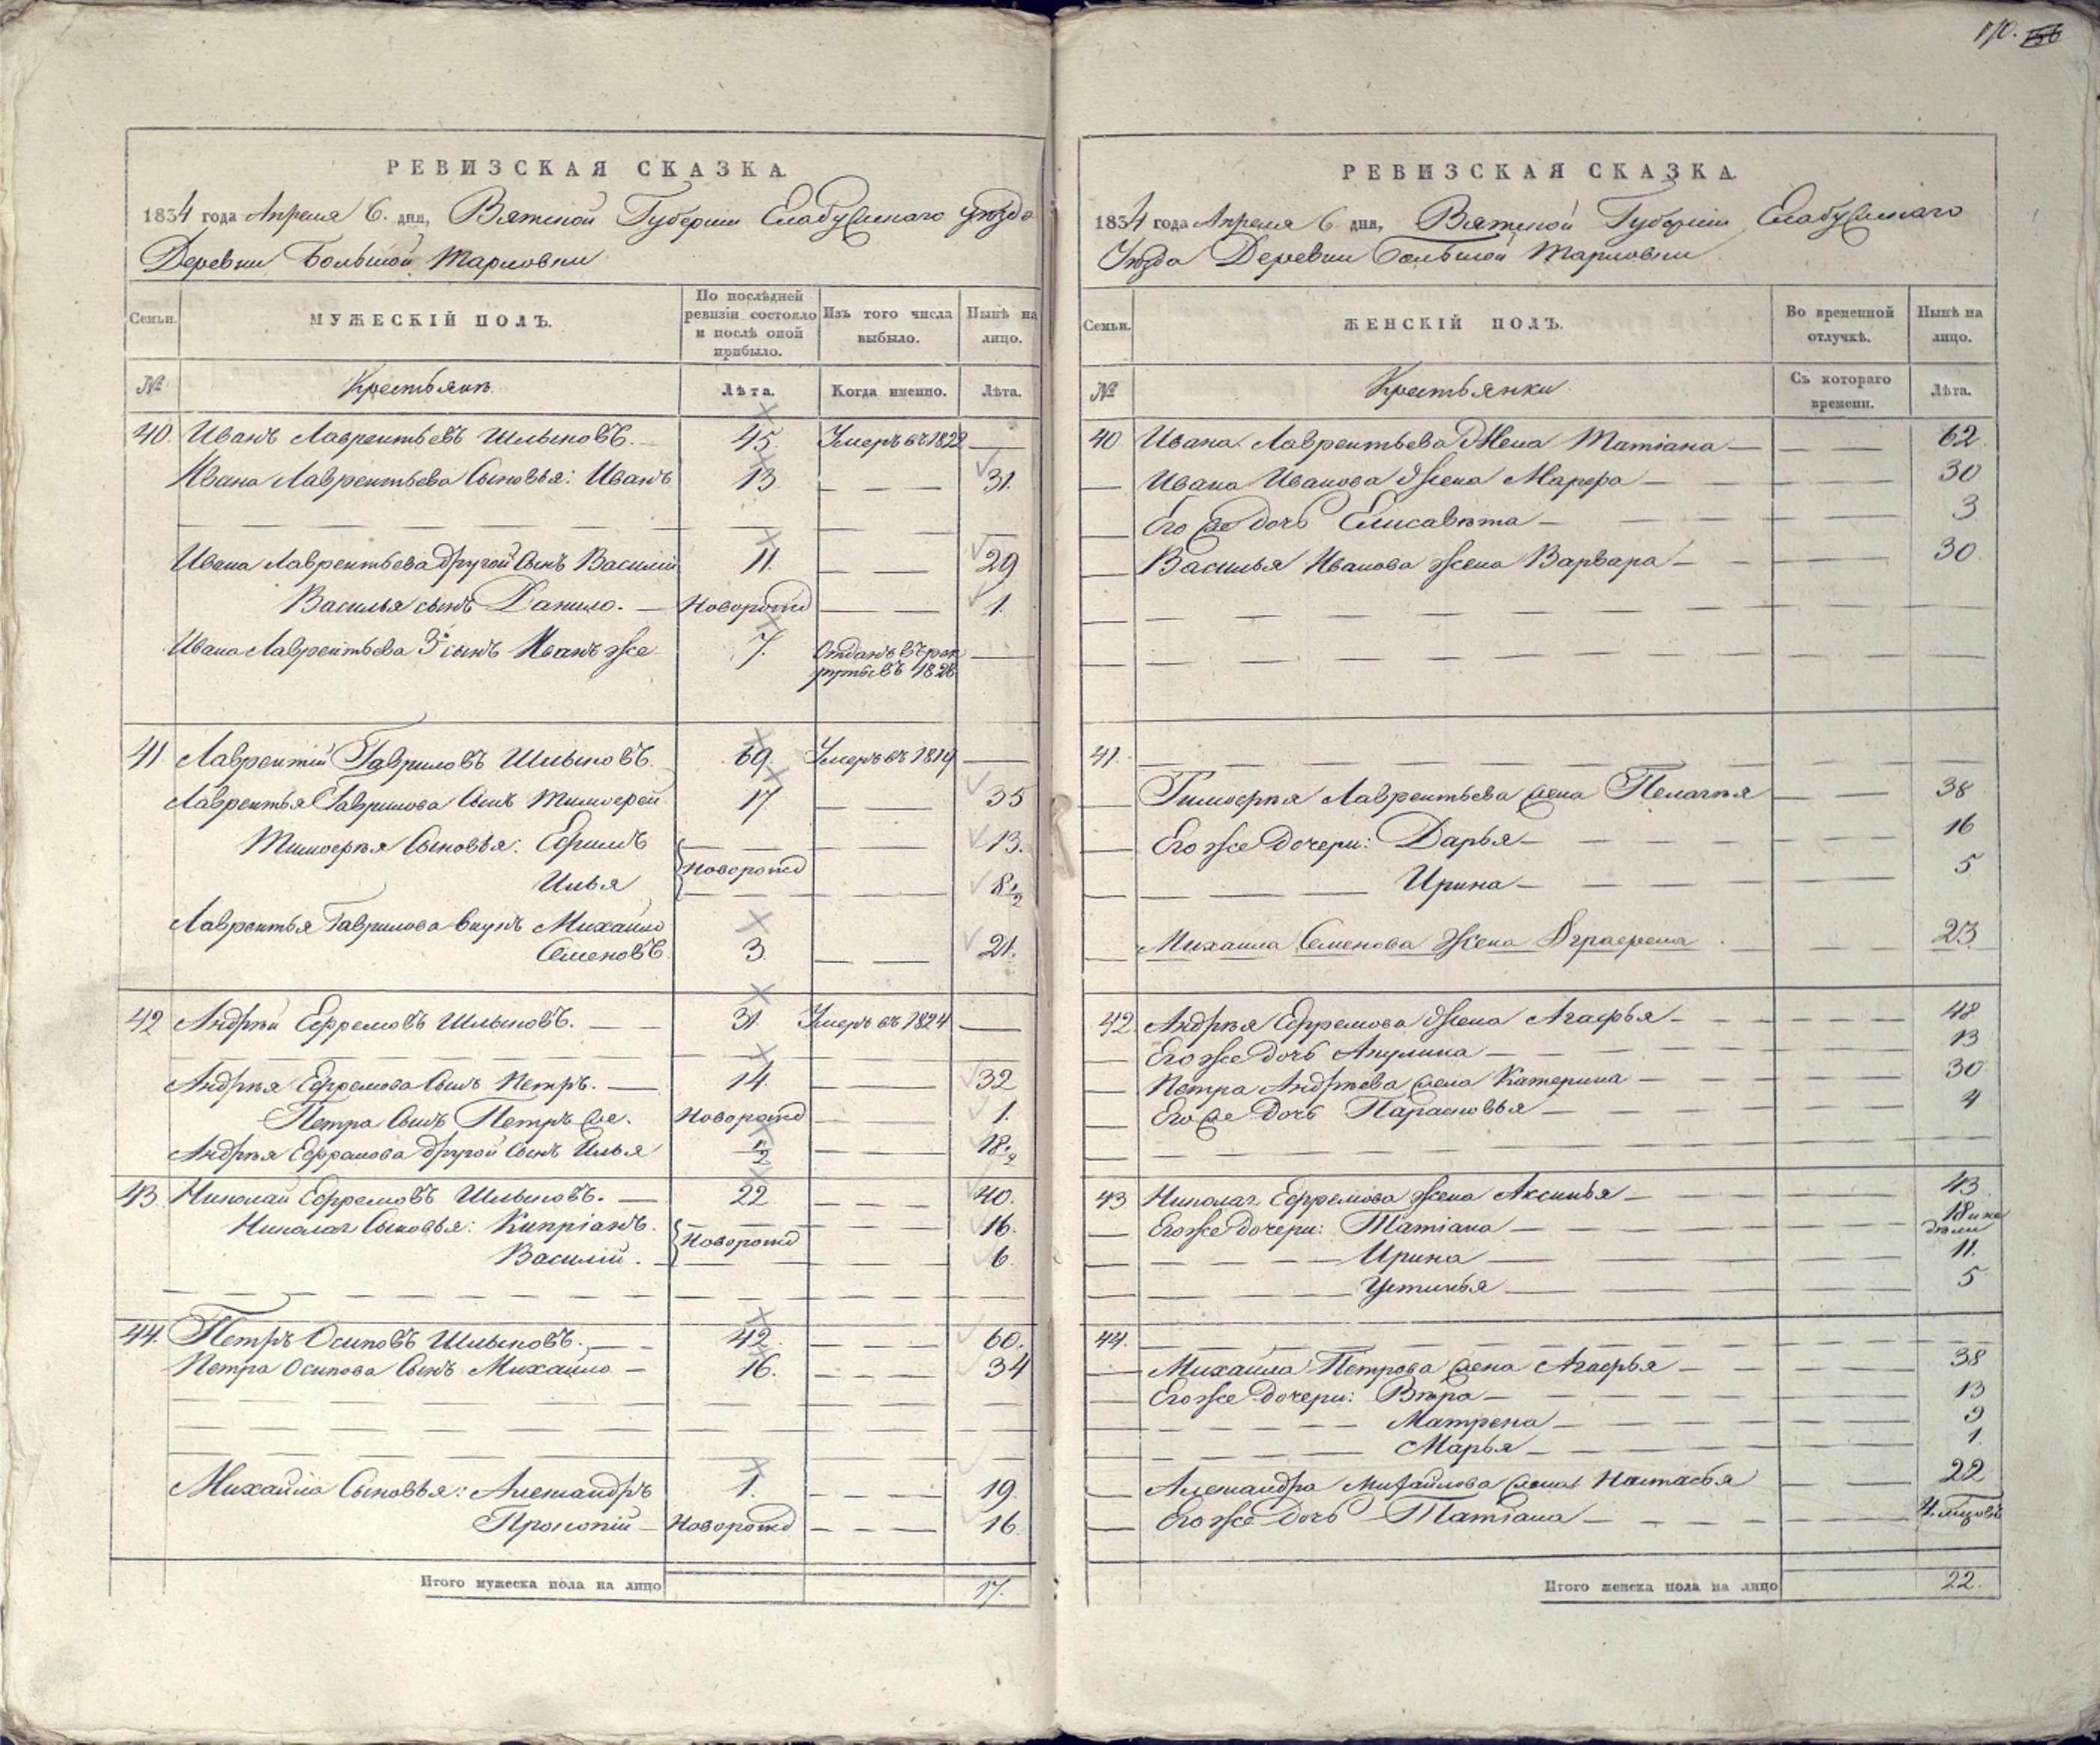 170. 156
РЕВИЗСКАЯ СКАЗКА
1834 года Апреля 6. дня, Вятской Губернiи Елабужскаго уѣзда
Деревни Большой Тарловки
Семьи. МУЖЕСКІЙ ПОЛЪ. По послѣдней ревизіи состояло и послѣ оной прибыло. Изъ того числа выбыло. Нынѣ на лицо.
№ Крестьянъ. Лѣта. Когда именно. Лѣта.
40. Иванъ Лаврентьевъ Шлыковъ. 45 Умеръ въ 1822
Ивана Лаврентьева Сыновья: Иванъ 13 31.
Ивана Лаврентьева другой Сынъ Василiй 11. 29
Василья сынъ Данило. Новорожд 1.
Ивана Лаврентьева 3й сынъ Иванъ же 7. Отданъ въ рек
руты въ 1828
41 Лаврентiй Гавриловъ Шлыковъ. 69. Умеръ въ 1819
Лаврентья Гаврилова Сынъ Тимофей 17 35
Тимофея Сыновья: Ефимъ 13.
Новорожд
Илья 8 1/2
Лаврентья Гаврилова внукъ Михайло
Семеновъ 3. 21.
42 Андрѣй Ефремовъ Шлыковъ. 31. Умеръ въ 1824
Андрѣя Ефремова Сынъ Петръ. 14 32
Петра Сынъ Петръ же. Новорожд 1.
Андрѣя Ефремова другой Сынъ Илья 1/2 18 1/2
43 Николай Ефремовъ Шлыковъ. 22 40.
Николая Сыновья: Кипрiанъ. 16.
Новорожд
Василiй. 6.
44. Петръ Осиповъ Шлыковъ. 42. 60.
Петра Осипова Сынъ Михайло 16. 34
Михайла Сыновья: Александръ 1. 19.
Прокопiй Новорожд 16.
Итого мужеска пола на лицо 17.
РЕВИЗСКАЯ СКАЗКА
1834 года Апреля 6 дня, Вятской Губернiи Елабужскаго
Уѣзда Деревни Большой Тарловки
Семьи. ЖЕНСКІЙ ПОЛЪ. Во временной отлучкѣ. Нынѣ на лицо.
№ Крестьянки. Съ котораго времени. Лѣта.
40. Ивана Лаврентьева Жена Матiана 62.
Ивана Иванова Жена Марфа 30
Его же дочь Елисавѣта 3
Василья Иванова жена Варвара 30.
41.
Тимофея Лаврентьева жена Пелагѣя 38
Его же дочери: Дарья 16
Ирина 5
Михаила Семенова Жена Аграфена 23.
42. Андрѣя Ефремова Жена Агафья 48
Его же дочь Акулина 13
Петра Андрѣева жена Катерина 30
Его же дочь Парасковья 4
43 Николая Ефремова жена Аксинья 43
Его же дочери: Татiана 18 и не
дѣли
Ирина 11.
Устинья 5
44.
Михаила Петрова жена Агафья 38
Его же дочери: Вѣра 13
Матрена 9
Марья 1
Александра Михайлова жена Настасья 22
Его же дочь Татiана 4. мцовъ
Итого женска пола на лицо 22.